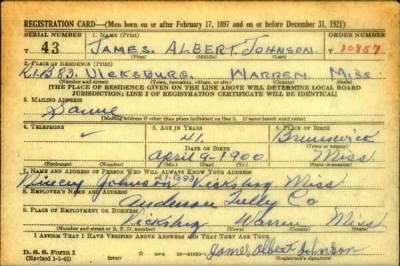 REGISTRATION CARD—(Men born on or after February 17, 1897 and on or before December 31, 1921)
SERIAL NUMBER 1. NAME (Print) ORDER NUMBER
T 43 JAMES ALBERT JOHNSON T 10857
2. PLACE OF RESIDENCE (Print)
VICKSBURG. WARREN MISS
(Number and street) (Town, township, village, or city) (County) (State)
[THE PLACE OF RESIDENCE GIVEN ON THE LINE ABOVE WILL DETERMINE LOCAL BOARD
JURISDICTION; LINE 2 OF REGISTRATION CERTIFICATE WILL BE IDENTICAL]
3. MAILING ADDRESS
Same
4. TELEPHONE 5. AGE IN YEARS 6. PLACE OF BIRTH
41 Brunswick
DATE OF BIRTH
April 9 - 1900 Miss
(Exchange) (Number) (Mo.) (Day) (Yr.) (State or country)
7. NAME AND ADDRESS OF PERSON WHO WILL ALWAYS KNOW YOUR ADDRESS
Johnson Vicksburg Miss
8. EMPLOYER'S NAME AND ADDRESS
Anderson Tully Co
9. PLACE OF EMPLOYMENT OR BUSINESS
Vicksburg Warren Miss
(Number and street or R. F. D. number) (Town) (County) (State)
I AFFIRM THAT I HAVE VERIFIED ABOVE ANSWERS AND THAT THEY ARE TRUE.
D. S. S. Form 1
(Revised 1-1-42) James Albert Johnson